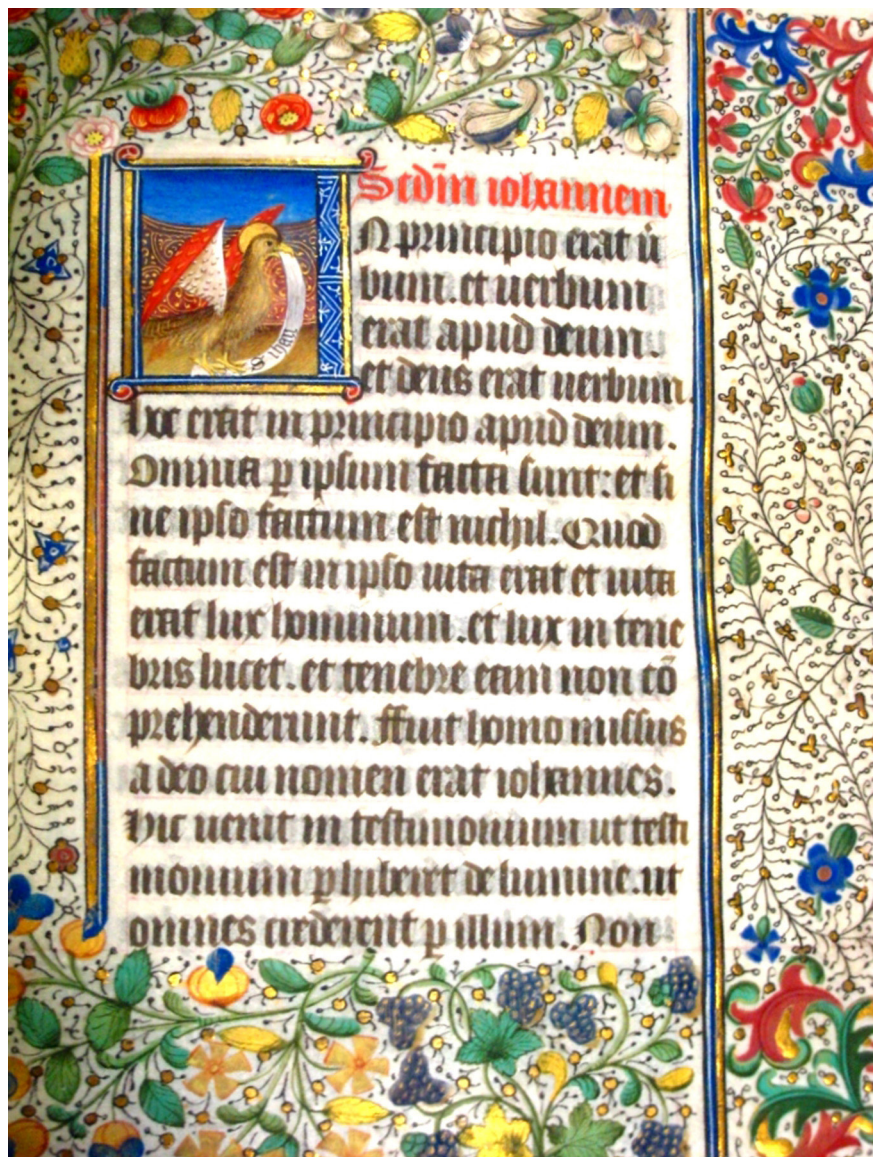 Scdm̄ iohannem
In principio erat ū
bum. et uerbum
erat apud deum.
et deus erat uerbum.
hoc erat in principio apud deum.
Omnia ꝑ ipsum facta sunt: et si
ne ipso factum est nichil. Quod
factum est in ipso uita erat et uita
erat lux hominum. et lux in tene
bris lucet. et tenebre eam non cō
prehenderunt. ffuit homo missus
a deo cui nomen erat iohannes.
hic uenit in testimonium ut testi
monium ꝑhiberet de lumine. ut
omnes crederent ꝑ illum. Non